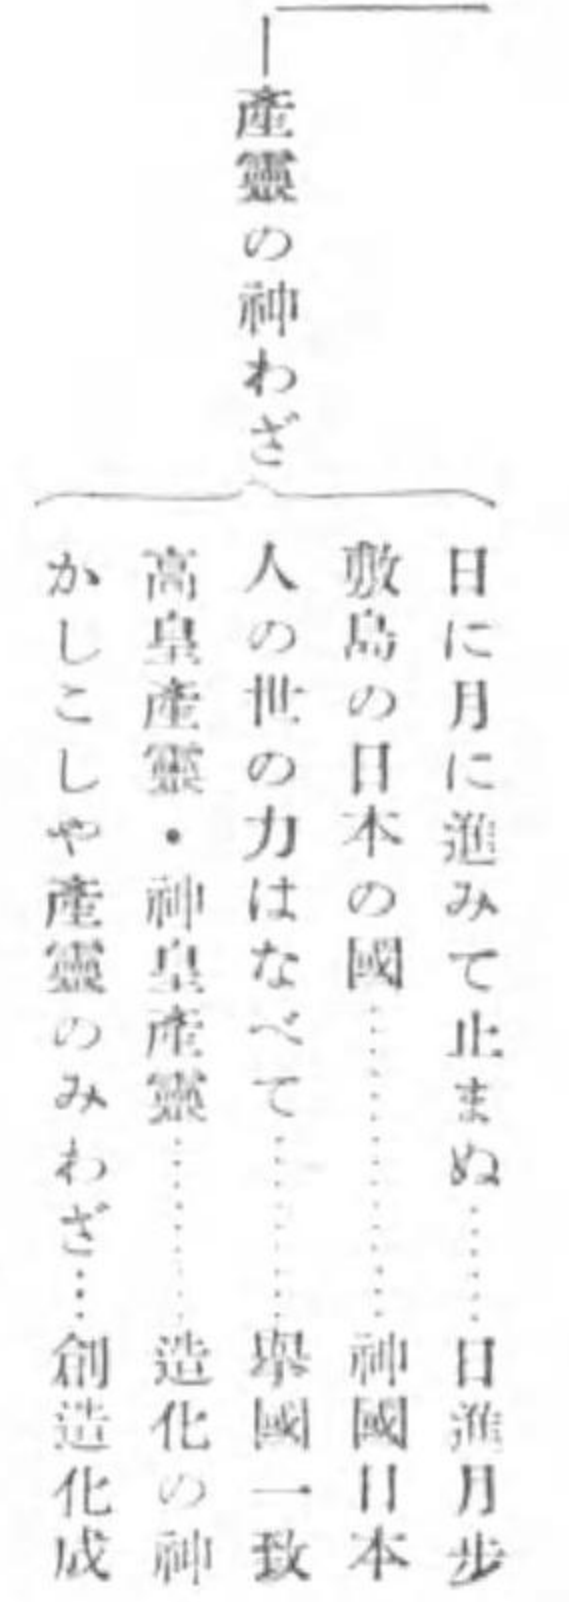 產靈の神わざ
日に月に進みて止まぬ……日進月步
敷島の日本の國……………神國日本
人の世の力はなべて………擧國一致
高皇產靈・神皇產靈………造化の神
かしこしや產靈のみわざ…創造化成